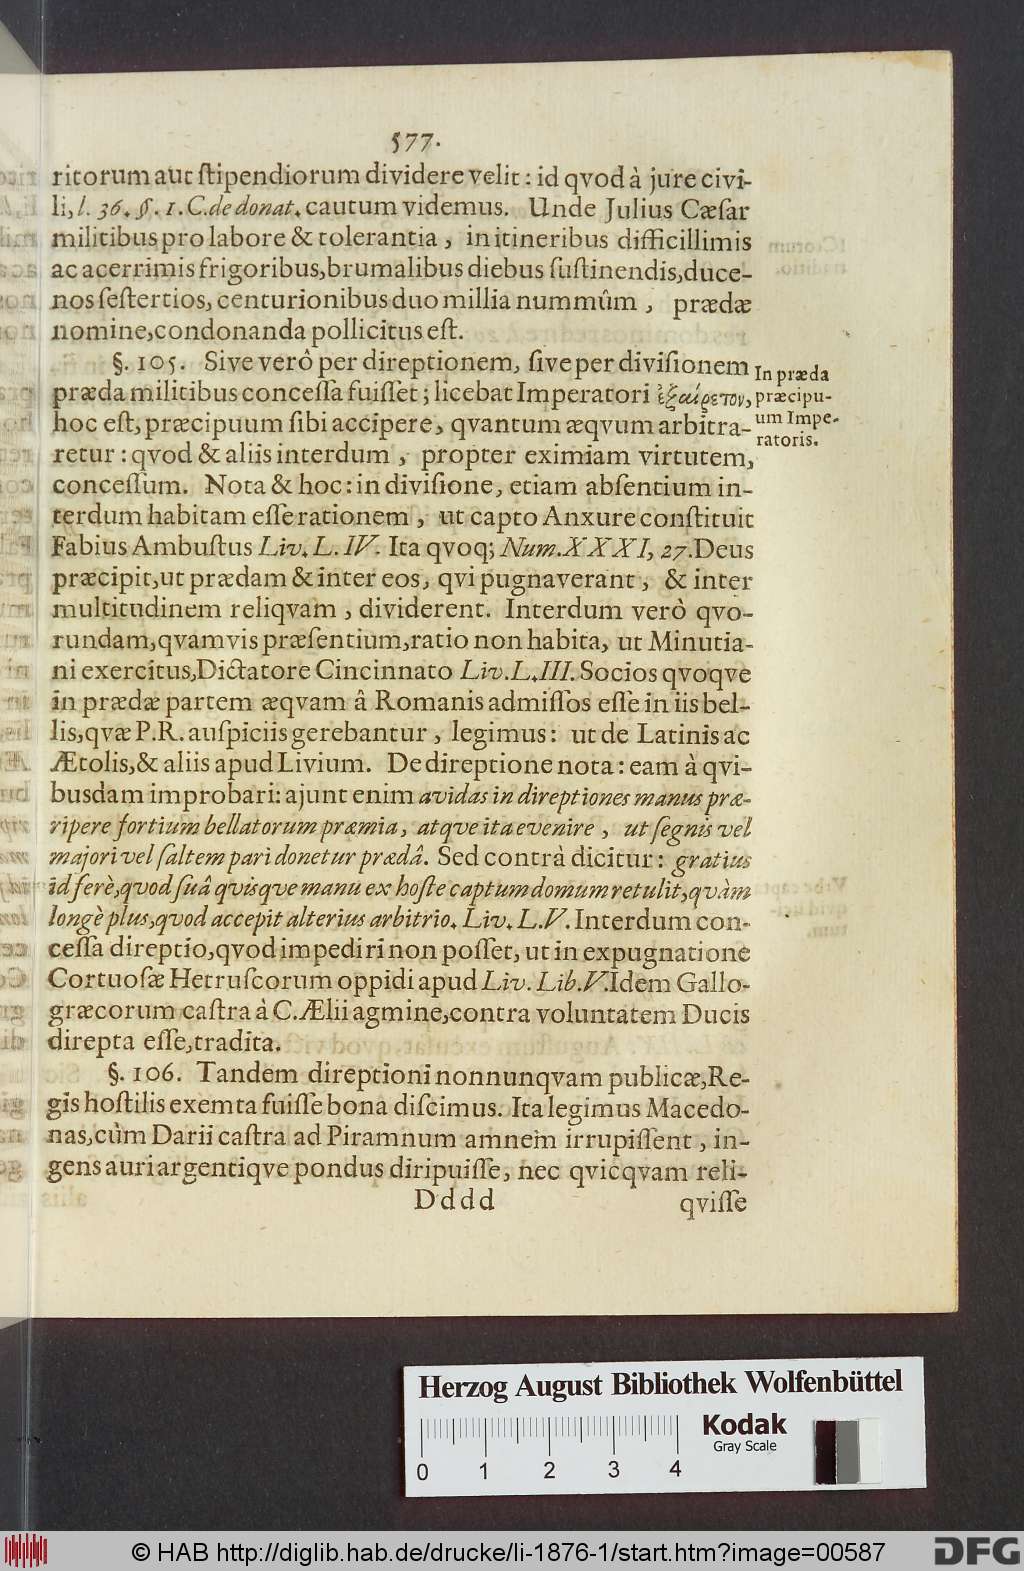 577.
ritorum aut ſtipendiorum dividere velit: id qvod à jure civi-
li, l. 36. §. 1. C. de donat. cautum videmus. Unde Julius Cæſar
militibus pro labore & tolerantia, in itineribus difficillimis
ac acerrimis frigoribus, brumalibus diebus ſuſtinendis, duce-
nos ſeſtertios, centurionibus duo millia nummûm, prædæ
nomine, condonanda pollicitus eſt.
§. 105. Sive verô per direptionem, ſive per diviſionem
præda militibus conceſſa fuiſſet; licebat Imperatori ἐξαίρετον,
hoc eſt, præcipuum ſibi accipere, qvantum æqvum arbitra-
retur: qvod & aliis interdum, propter eximiam virtutem,
conceſſum. Nota & hoc: in diviſione, etiam abſentium in-
terdum habitam eſſe rationem, ut capto Anxure conſtituit
Fabius Ambuſtus Liv. L. IV. Ita qvoq; Num. XXXI, 27. Deus
præcipit, ut prædam & inter eos, qvi pugnaverant, & inter
multitudinem reliqvam, dividerent. Interdum verò qvo-
rundam, qvamvis præſentium, ratio non habita, ut Minutia-
ni exercitus, Dictatore Cincinnato Liv. L. III. Socios qvoqve
in prædæ partem æqvam â Romanis admiſſos eſſe in iis bel-
lis, qvæ P. R. auſpiciis gerebantur, legimus: ut de Latinis ac
Ætolis, & aliis apud Livium. De direptione nota: eam à qvi-
busdam improbari: ajunt enim avidas in direptiones manus præ-
ripere fortium bellatorum præmia, atqve ita evenire, ut ſegnis vel
majori vel ſaltem pari donetur prædâ. Sed contrà dicitur: gratius
id ferè, qvod ſuâ qvisqve manu ex hoſte captum domum retulit, qvàm
longè plus, qvod accepit alterius arbitrio. Liv. L. V. Interdum con-
ceſſa direptio, qvod impediri non poſſet, ut in expugnatione
Cortuoſæ Hetruſcorum oppidi apud Liv. Lib. V. Idem Gallo-
græcorum caſtra à C. Ælii agmine, contra voluntatem Ducis
direpta eſſe, tradita.
§. 106. Tandem direptioni nonnunqvam publicæ, Re-
gis hoſtilis exemta fuiſſe bona diſcimus. Ita legimus Macedo-
nas, cùm Darii caſtra ad Piramnum amnem irrupiſſent, in-
gens auri argentiqve pondus diripuiſſe, nec qvicqvam reli-
Dddd qviſſe
In præda
præcipu-
um Impe-
ratoris.
Herzog August Bibliothek Wolfenbüttel
0 1 2 3 4
Kodak
Gray Scale
© HAB http://diglib.hab.de/drucke/li-1876-1/start.htm?image=00587
DFG